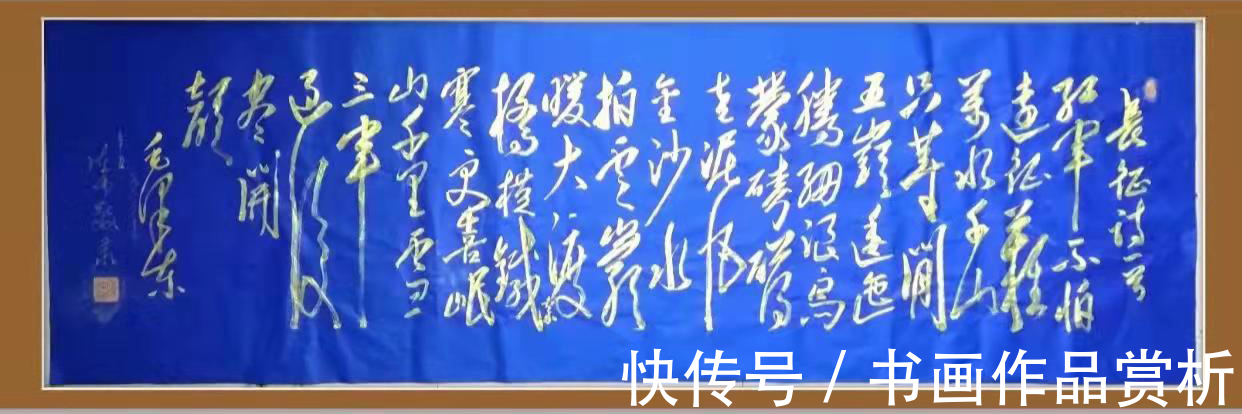 長征詩一首
紅軍不怕
遠征難
萬水千山
只等閒
五嶺逶迤
騰細浪烏
蒙磅礴
走泥丸
金沙水
拍雲崖
暖大渡
橋橫鐵索
寒更喜岷
山千里雪
三軍
過後
盡開
顏
毛澤東
快传号 / 书画作品赏析